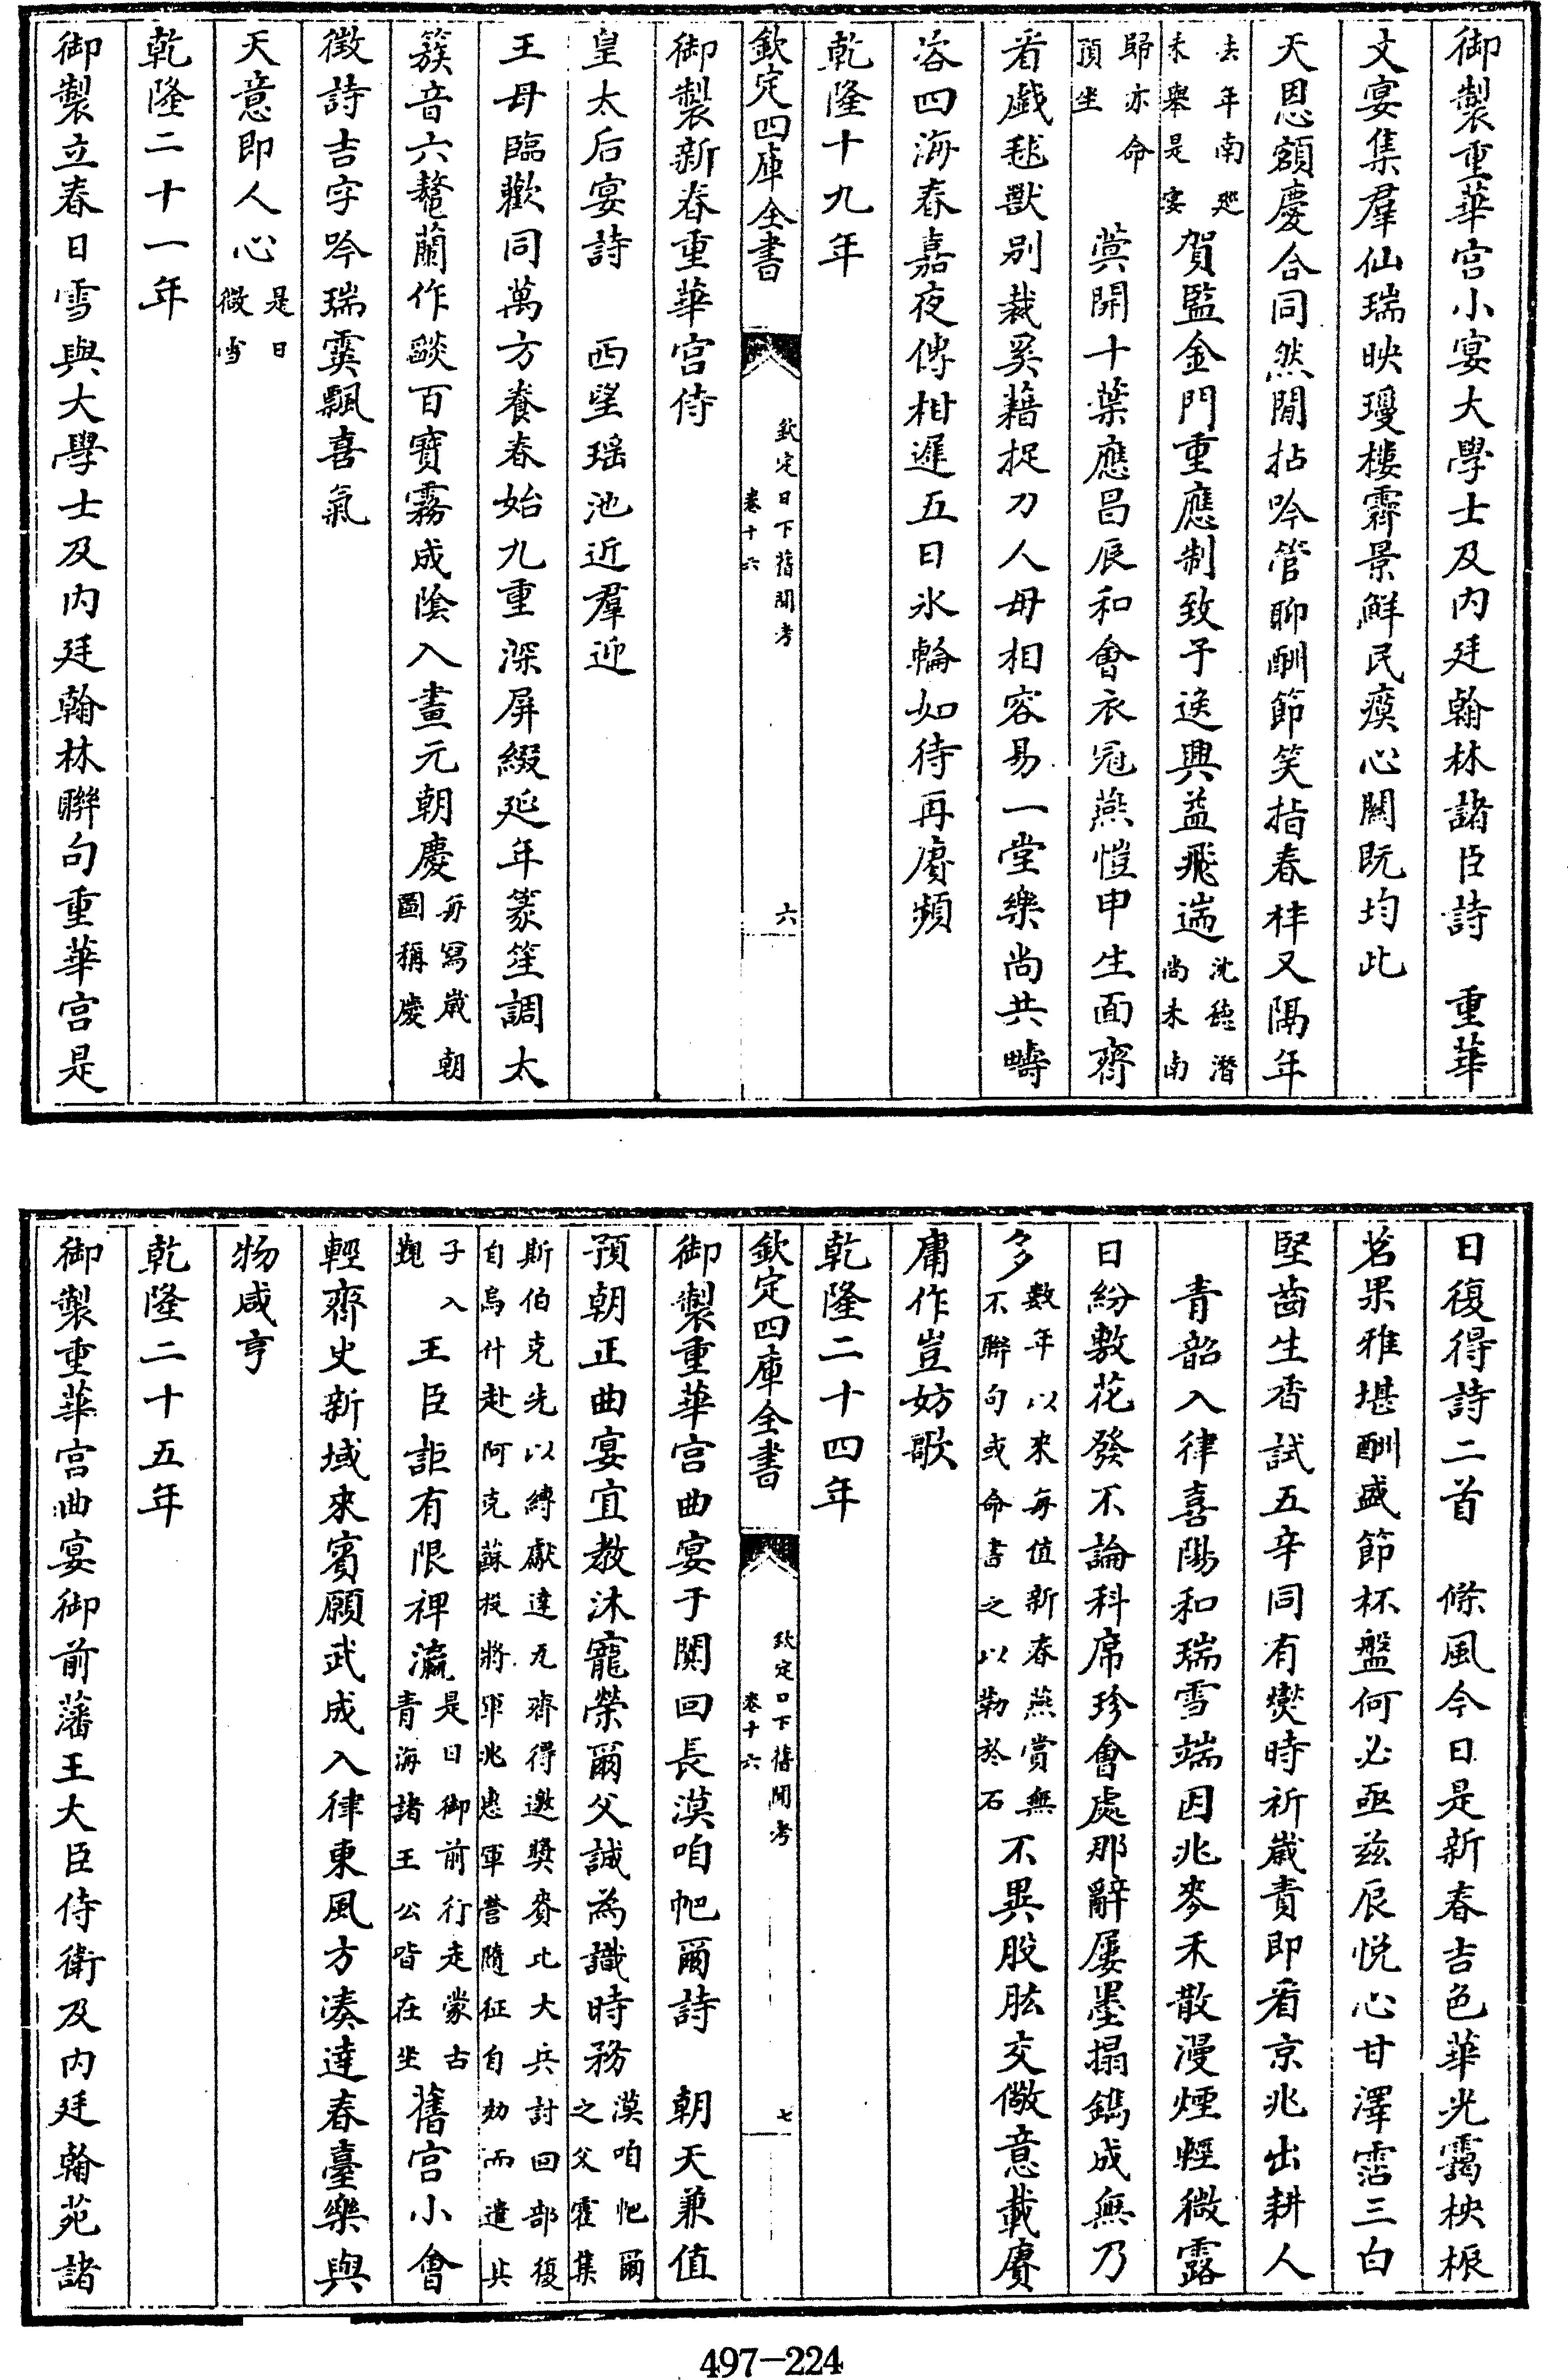 御製重華宫小宴大學士及内廷翰林諸臣詩　重華
文宴集羣仙瑞映瓊樓霽景鮮民瘼心關既均此
天恩額慶合同然閒拈吟管聊酬節笑指春柈又隔年
去年南廵未舉是宴賀監金門重應制致予逸興益飛遄沈德潛尚未南
歸亦命預坐　蓂開十葉應昌辰和會衣冠燕愷申生面齊
看戲毬獸别裁奚藉捉刀人毋相容易一堂樂尚共疇
咨四海春嘉夜傳柑遲五日氷輪如待再賡頻
乾隆十九年
欽定四庫全書　欽定日下舊聞考卷十六　六
御製新春重華宫侍
皇太后宴詩　西望瑶池近羣迎
王母臨歡同萬方養春始九重深屏綴延年篆笙調太
簇音六鼇蘭作燄百寳霧成陰入畫元朝慶每寫歲朝圖稱慶
徵詩吉字吟瑞霙飄喜氣
天意即人心是日微雪
乾隆二十一年
御製立春日雪與大學士及内廷翰林聯句重華宫是
日復得詩二首　條風今日是新春吉色華光靄柍桭
茗果雅堪酬盛節杯盤何必亟兹辰悦心甘澤霑三白
堅齒生香試五辛同有爕時祈歲責即看京兆出耕人
青韶入律喜陽和瑞雪端因兆麥禾散漫煙輕微露
日紛敷花發不論科席珍會處那辭屢墨搨鐫成無乃
多數年以來每值新春燕賞無不聯句或命書之以勒於石不異股肱交儆意載賡
庸作豈妨歌
乾隆二十四年
欽定四庫全書　欽定日下舊聞考卷十六　七
御製重華宫曲宴于闐回長漠咱帊爾詩　朝天兼值
預朝正曲宴宜教沐寵榮爾父誠為識時務漠咱帊爾之父霍集
斯伯克先以縳獻達瓦齊得邀奬賚比大兵討回部復自烏什赴阿克蘇投將軍兆惠軍營隨征自効而遣其
子入覲　王臣詎有限裨瀛是日御前行走蒙古青海諸王公皆在坐舊宫小會
輕齊史新域來賓願武成入律東風方凑達春臺樂與
物咸亨
乾隆二十五年
御製重華宫曲宴御前藩王大臣侍衛及内廷翰苑諸
497—224